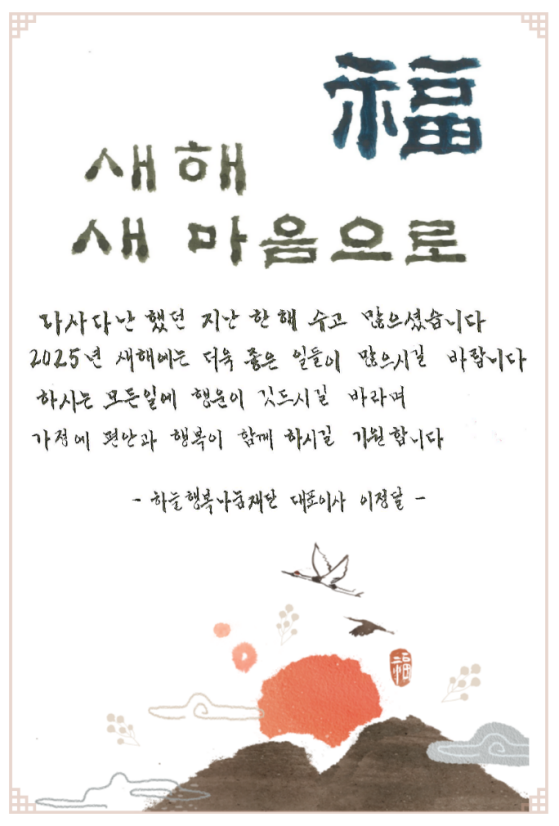 福
새해
새 마음으로
다사다난 했던 지난 한 해 수고 많으셨습니다
2025년 새해에는 더욱 좋은 일들이 많으시길 바랍니다
하시는 모든일에 행운이 깃드시길 바라며
가정에 편안과 행복이 함께 하시길 기원합니다
- 하늘행복나눔재단 대표이사 이정달 -
福